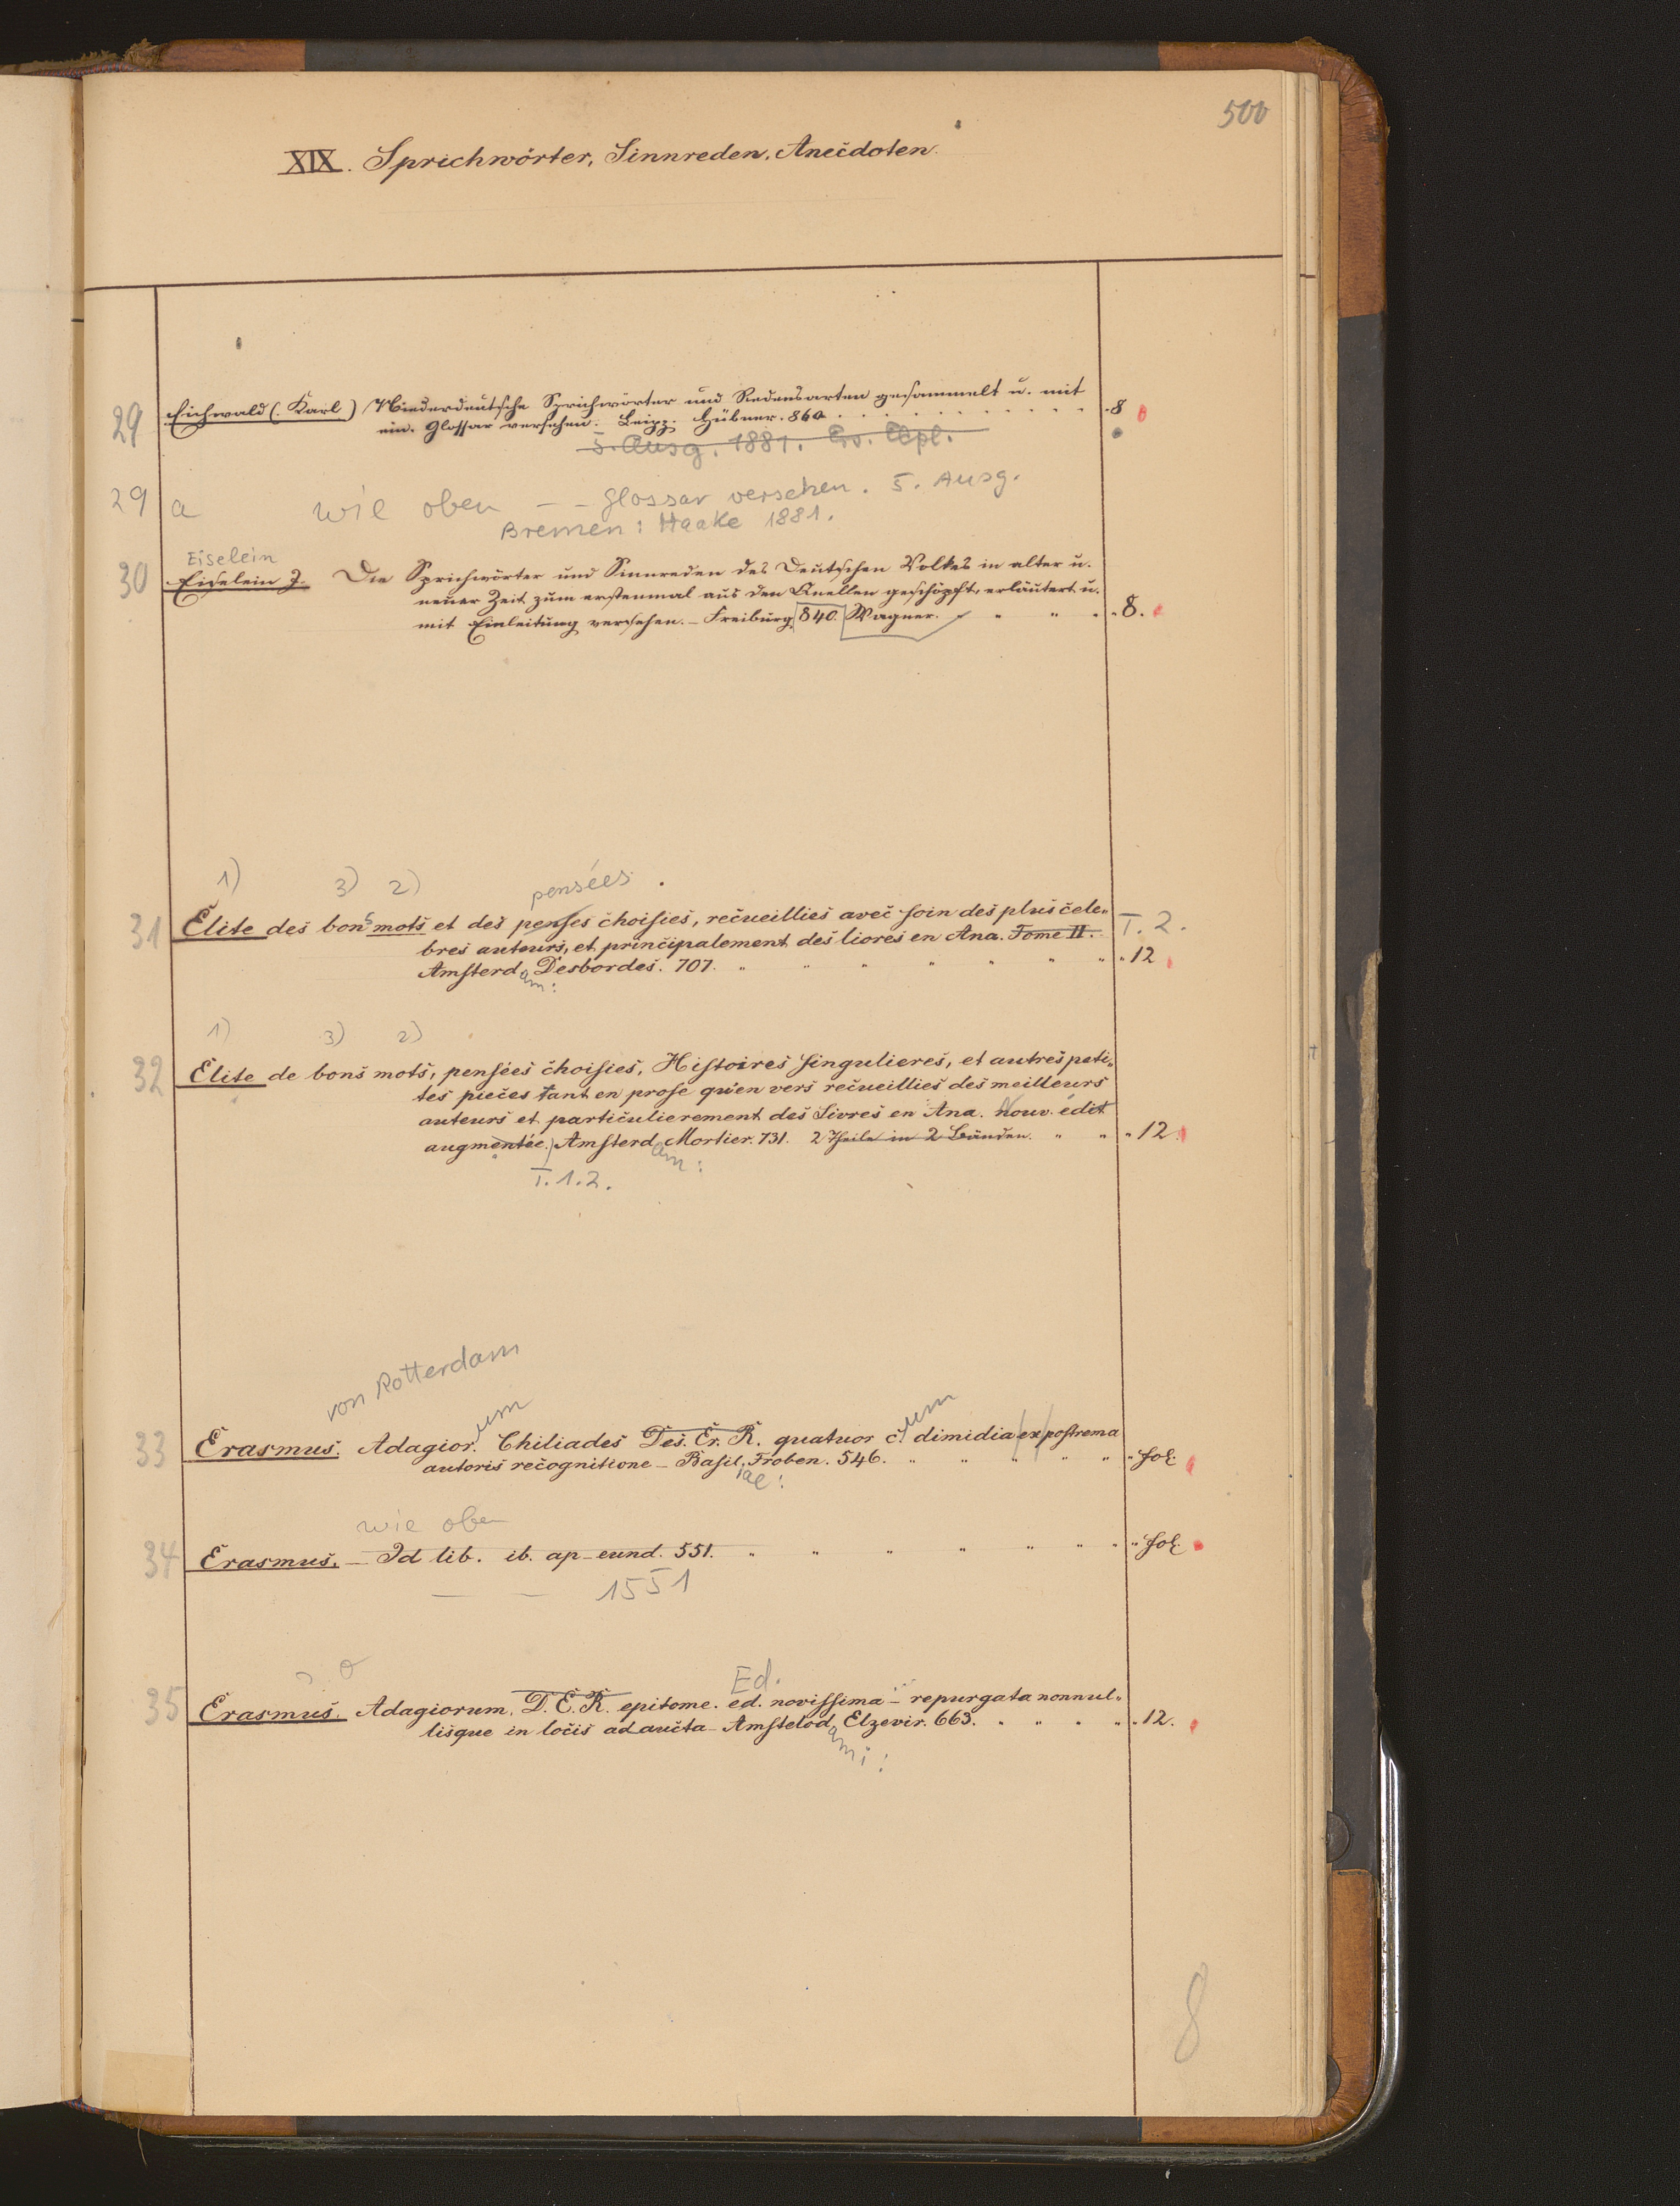 500
XIX. Sprichwörter, Sinnreden, Anecdoten.
29 Eichwald (Karl) Niederdeutsche Sprichwörter und Redensarten gesammelt u. mit
ein. Glossar versehen. Leipz. Hübner. 860. 8
5. Ausg. 1881.
29 a wie oben — — Glossar versehen. 5. Ausg.
Bremen: Haake 1881.
Eiselein
30 Eiselein J. Die Sprichwörter und Sinnreden des Deutschen Volkes in alter u.
neuer Zeit zum erstenmal aus den Quellen geschöpft, erläutert u.
mit Einleitung versehen. – Freiburg, 840. Wagner. " " " 8.
1) 3) 2) pensées
31 Élite des bons mots et des penses choisies, recueillies avec soin des plus cele-
bres auteurs, et principalement des livres en Ana. Tome II. T. 2.
Amsterd. Desbordes. 707. " " " " " " " 12
am:
1) 3) 2)
32 Élite de bons mots, pensées choisies, Histoires singulieres, et autres peti-
tes pieces tant en prose qu'en vers recueillies des meilleurs
auteurs et particulierement des Livres en Ana. Nouv. édit
augmentée. Amsterd. Mortier. 731. 2 Theile in 2 Bänden. " " " 12.
am:
T. 1.2.
von Rotterdam
um um
33 Erasmus. Adagior. Chiliades Des. Er. R. quatuor c. dimidia ex postrema
autoris recognitione – Basil. Froben. 546. " " " " " " fol.
iae:
wie oben
34 Erasmus. – Id lib. ib. ap eund. 551. " " " " " " " " fol.
— — 1551
Ed.
35 Erasmus. Adagiorum. D. E. R. epitome. ed. novissima – repurgata nonnul-
lisque in locis adaucta – Amstelod. Elzevir. 663. " " " " " 12.
ami:
8